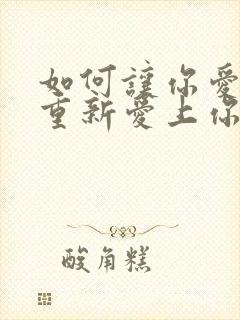 如何讓你愛
重新愛上你
酸角糕